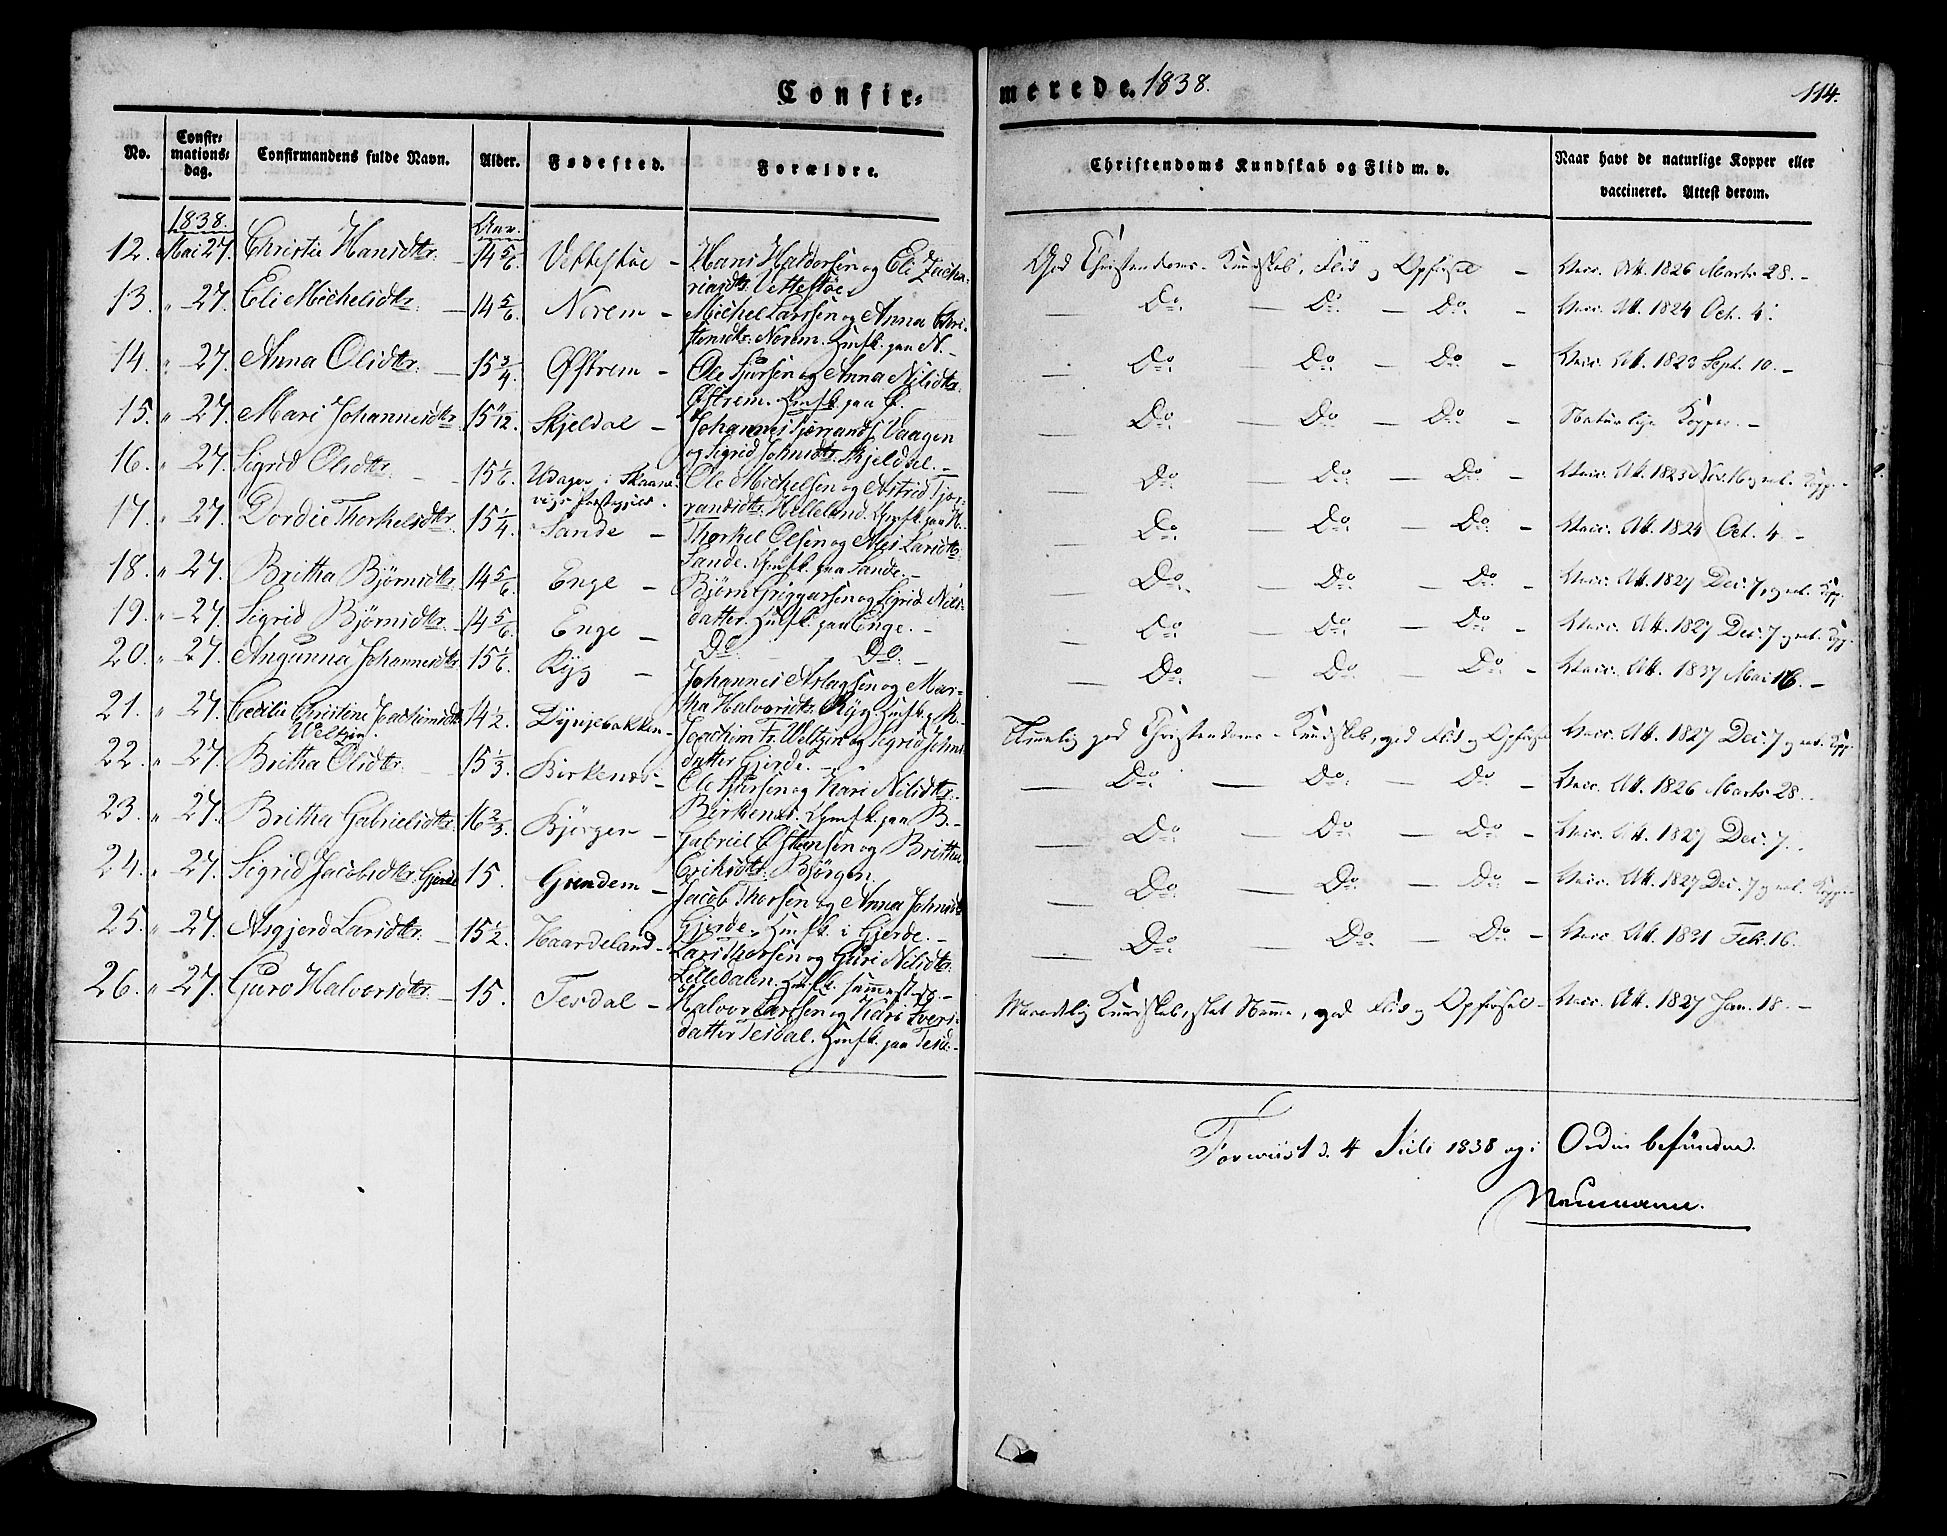 Confirmerede. 1838.
114.
No. Confirmationsdag. Confirmandens fulde Navn. Alder. Fødested. Forældre. Christendoms Kundskab og Flid m. v. Naar havt de naturlige Kopper eller vaccineret. Attest derom.
1838. Aar.
12. Mai 27. Christie Hansdtr. 14 5/6. Vettestøe - Hans Haldorsen og Eli Zacha- God Christendoms-Kundskab, Flid og Opførsel - Vacc. Att. 1826 Marts 28. -
riasdtr. Vettestøe.
13. " 27. Eli Michelsdtr. 14 5/6. Norem - Michel Larssen og Anna Chri- Do. Do. Do. - Vacc. Att. 1824 Oct. 4.
stensdtr. Norem. Huusfk. paa N. -
14. " 27. Anna Olsdtr. 15 3/4. Østrem - Ole Sjursen og Anna Nilsdtr. Do. Do. Do. - Vacc. Att. 1823 Sept. 10. -
Østrem. Huusfk. paa Ø.
15. " 27. Mari Johannesdtr. 15 11/12. Skjeldal - Johannes Vaagen Do. Do. Do. - Naturlige Kopper. -
og Sigrid Johnsdtr. Skjeldal. -
16. " 27. Sigrid Olsdtr. 15 1/6. i Skaane- Ole Michelsen og Astrid Tjer- Do. Do. Do. - Vacc. Att. 1823
vigs Præstegjeld. randsdtr. Helleland. Huusfk. paa H.
17. " 27. Dordie Thorkelsdtr. 15 1/4. Sande - Thorkel Olsen og Larsdtr. Do. Do. Do. - Vacc. Att. 1824 Oct. 4 -
Sande. Huusfk. paa Sande. -
18. " 27. Britha Bjørnsdtr. 14 5/6. Enge - Bjørn og Sigrid Nils- Do. Do. Do. - Vacc. Att. 1827 Dec. 7, og nat. Kopp.
datter. Huusfk. paa Enge. -
19. " 27. Sigrid Bjørnsdtr. 14 5/6. Enge - Do. Do. - Do. Do. Do. - Vacc. Att. 1827 Dec. 7 og nat. Kopp.
20. " 27. Angunna Johannesdtr. 15 1/6. Ryg - Johannes Aslagsen og Mar- Do. Do. Do. - Vacc. Att. 1837 Mai 16. -
tha Halvorsdtr. Ryg Huusfk. p. R. -
21. " 27. Cecilie Christine Joachimsdtr. 14 1/2. Dyngebakken - Joachim Fr. Weltzin og Sigrid Johns- Temmelig god Christendoms-Kundskab, god Flid og Opførsel Vacc. Att. 1827 Dec. 7 og nat. Kopp.
Weltzin. datter Gjerde. -
22. " 27. Britha Olsdtr. 15 1/3. Birkenes - Ole Sjursen og Kari Nilsdtr. Do. Do. Do. - Vacc. Att. 1826 Marts 28.
Birkenes. Huusfk. paa B. -
23. " 27. Britha Gabrielsdtr. 16 2/3. Bjørgen - Gabriel Østensen og Britha Do. Do. Do. - Vacc. Att. 1827 Dec. 7.
Eriksdtr. Bjørgen.
24. " 27. Sigrid Jacobsdtr. Gjerde 15. Grindem - Jacob Thorsen og Anna Johnsdtr. Do. Do. Do. - Vacc. Att. 1827 Dec. 7 og nat. Kopp.
Gjerde. Huusfk. i Gjerde. -
25. " 27. Asgjerd Larsdtr. 15 1/2. Haardeland - Lars Thorsen og Guri Nilsdtr. Do. Do. Do. - Vacc. Att. 1831 Feb. 16.
Lilledalen. Huusfk. sammest.
26. " 27. Guro Halvorsdtr. 15. Tesdal - Halvor Larssen og Kari Ivers- Maadelig Kundskab, slet Nemme, god Flid og Opførsel - Vacc. Att. 1827 Jan. 18. -
datter Tesdal. Huusfk. paa Tesd. -
Foreviist d. 4 Juli 1838 og i Orden befunden.
Neumann.